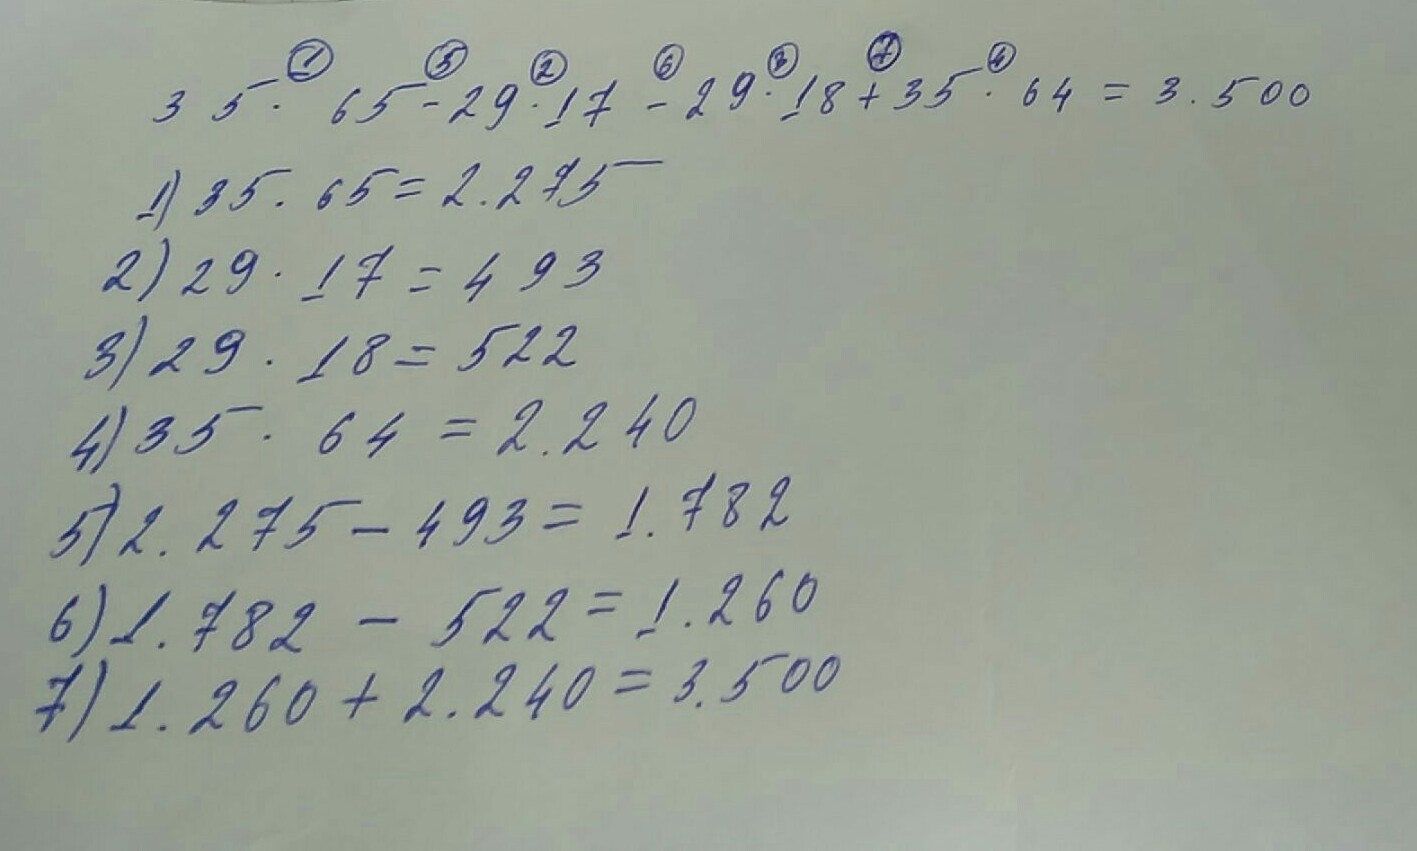 ① ⑤ ② ⑥ ③ ⑦ ④
35 · 65 - 29 · 17 - 29 · 18 + 35 · 64 = 3.500
1) 35 · 65 = 2.275
2) 29 · 17 = 493
3) 29 · 18 = 522
4) 35 · 64 = 2.240
5) 2.275 - 493 = 1.782
6) 1.782 - 522 = 1.260
7) 1.260 + 2.240 = 3.500